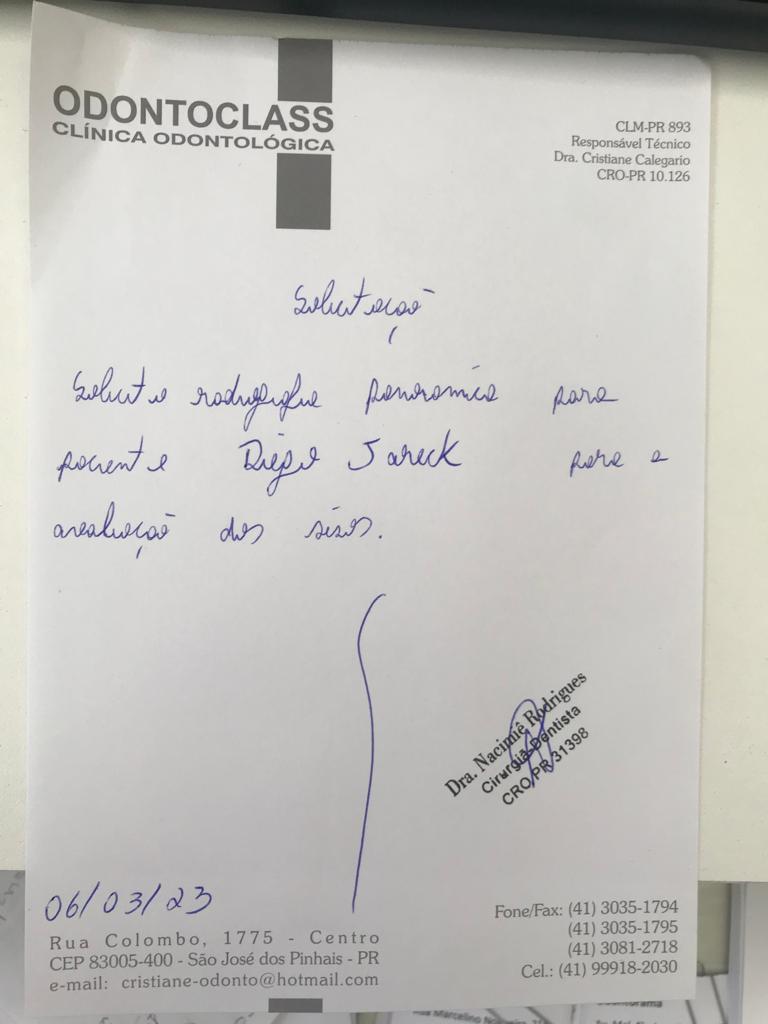 ODONTOCLASS
CLÍNICA ODONTOLÓGICA
CLM-PR 893
Responsável Técnico
Dra. Cristiane Calegario
CRO-PR 10.126
Solicitação
Solicito radiografia panoramica para
paciente Diego Jareck para a
avaliação dos sisos.
Dra. Nacimiê Rodrigues
Cirurgiã-Dentista
CRO/PR 31398
06/03/23
Rua Colombo, 1775 - Centro
CEP 83005-400 - São José dos Pinhais - PR
e-mail: cristiane-odonto@hotmail.com
Fone/Fax: (41) 3035-1794
(41) 3035-1795
(41) 3081-2718
Cel.: (41) 99918-2030